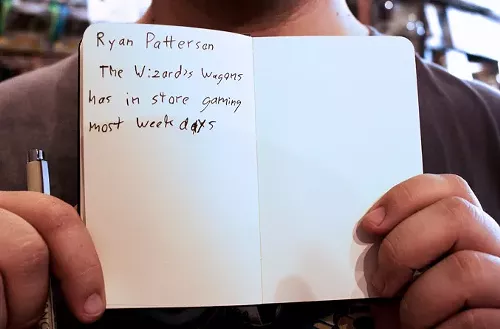 Ryan Patterson
The Wizard's Wagons
has in store gaming
most week days